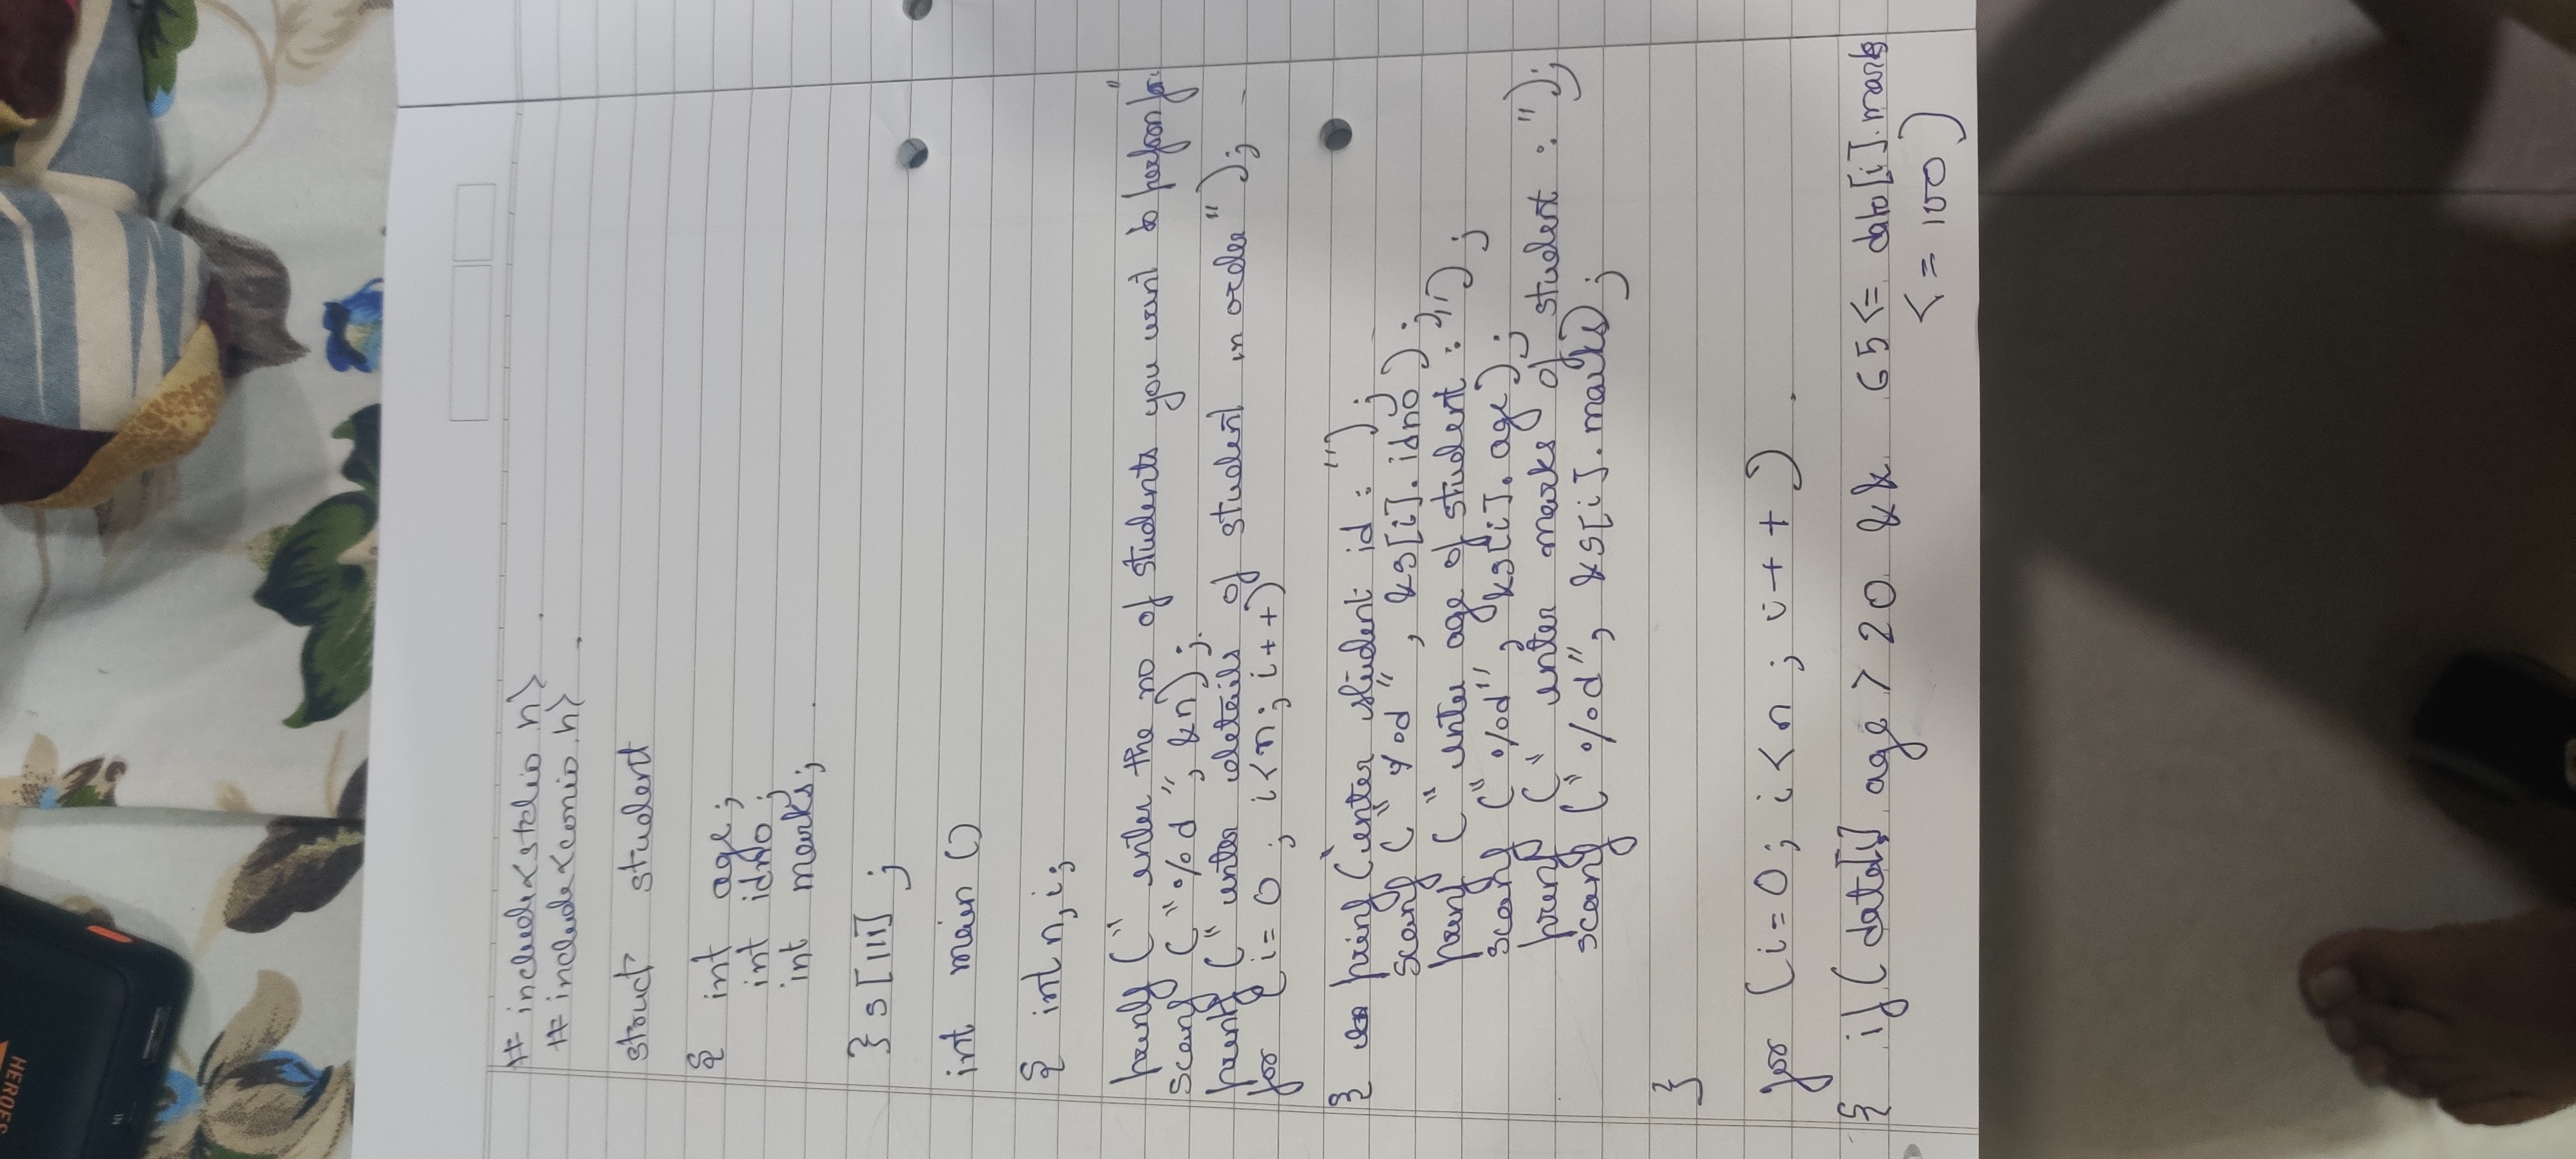 HEROES
IN
# include<stdio.h>
# include<conio.h>
struct student
{ int age;
int idno;
int marks;
} s[111];
int main ()
{ int n, i;
printf (" enter the no of students you want to perform for:"
scanf ("%d", &n);
printf (" enter details of student in order");
for (i= 0 ; i<n; i++)
{ printf ("enter student id : ");
scanf (" %d ", &s[i]. idno);
printf (" enter age of student : ");
scanf ("%d", &s[i]. age);
printf (" enter marks of student : ");
scanf (" %d", &s[i]. marks);
}
for (i=0; i<n ; i++)
{ if( data[i] age > 20 && 65<= data[i]. marks
<= 100 )